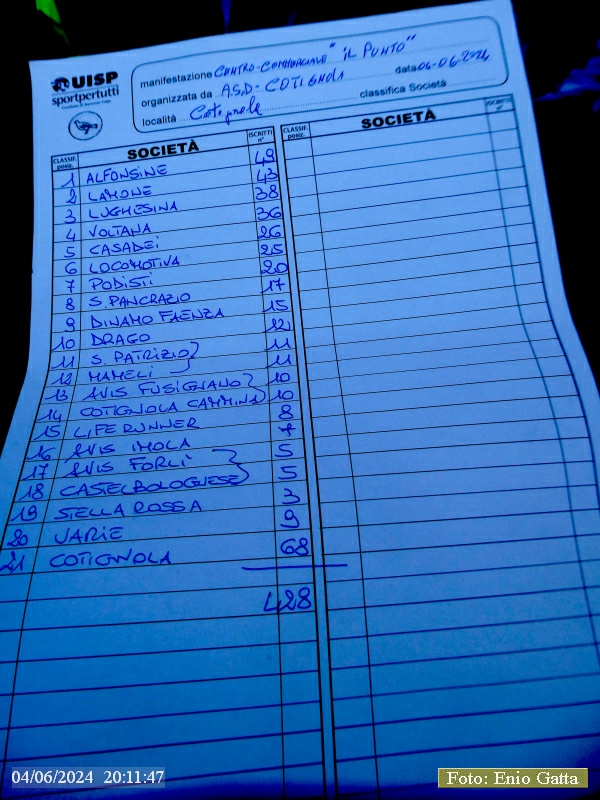 UISP
sportpertutti
manifestazione CENTRO-COMMERCIALE "IL PUNTO"
organizzata da A.S.D- COTIGNOLA data 04-06-2024
località Cotignola classifica Società
CLASSIF. posiz. SOCIETÀ ISCRITTI n° CLASSIF. posiz. SOCIETÀ ISCRITTI n°
1 ALFONSINE 49
2 LAMONE 43
3 LUGHESINA 38
4 VOLTANA 36
5 CASADEI 26
6 LOCOMOTIVA 25
7 PODISTI 20
8 S. PANCRAZIO 17
9 DINAMO FAENZA 15
10 DRAGO 12
11 S. PATRIZIO 11
12 MAMELI 11
13 AVIS FUSIGNANO 10
14 COTIGNOLA CAMMINA 10
15 LIFE RUNNER 8
16 AVIS IMOLA 7
17 AVIS FORLÌ 5
18 CASTELBOLOGNESE 5
19 STELLA ROSSA 3
20 VARIE 9
21 COTIGNOLA 68
428
04/06/2024 20:11:47
Foto: Enio Gatta